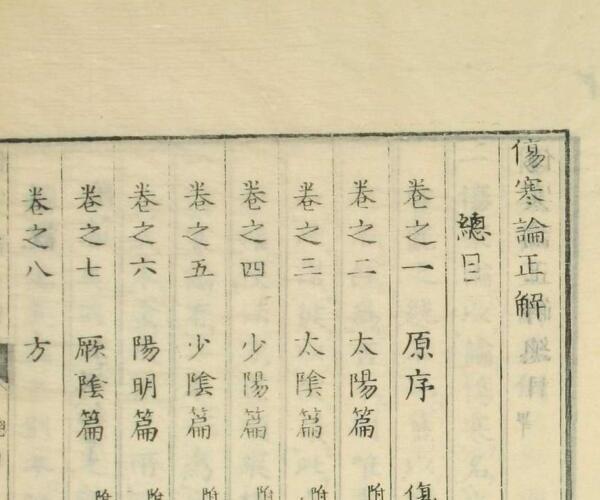 傷寒論正解
總目
卷之一 原序 傷
卷之二 太陽篇 附
卷之三 太陰篇 附
卷之四 少陽篇 附
卷之五 少陰篇 附
卷之六 陽明篇 附
卷之七 厥陰篇 附
卷之八 方